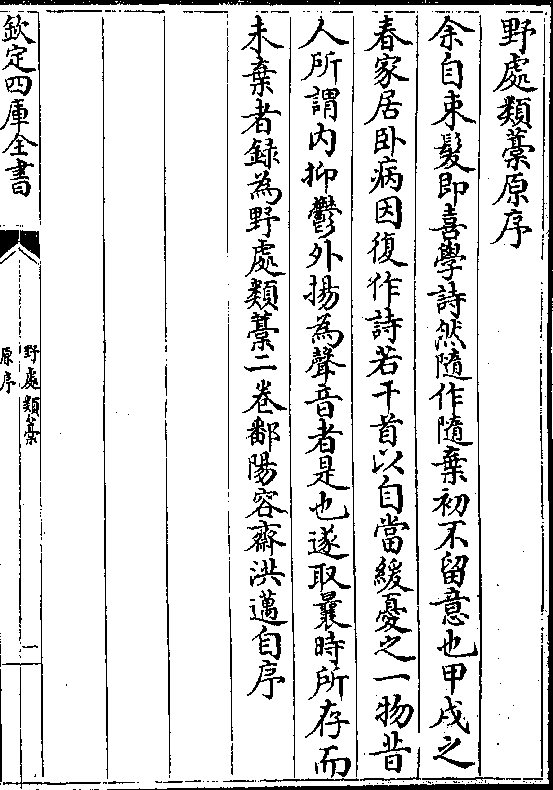 野處類藳原序
余自束髮即喜學詩然隨作隨棄初不留意也甲戌之
春家居卧病因復作詩若干首以自當緩憂之一物昔
人所謂内抑鬱外揚為聲音者是也遂取曩時所存而
未棄者録為野處類藳二卷鄱陽容齋洪邁自序
欽定四庫全書
野處類藳
原序
一